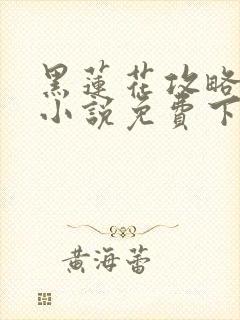 黑蓮花攻略
小說免費下
黃海蕾